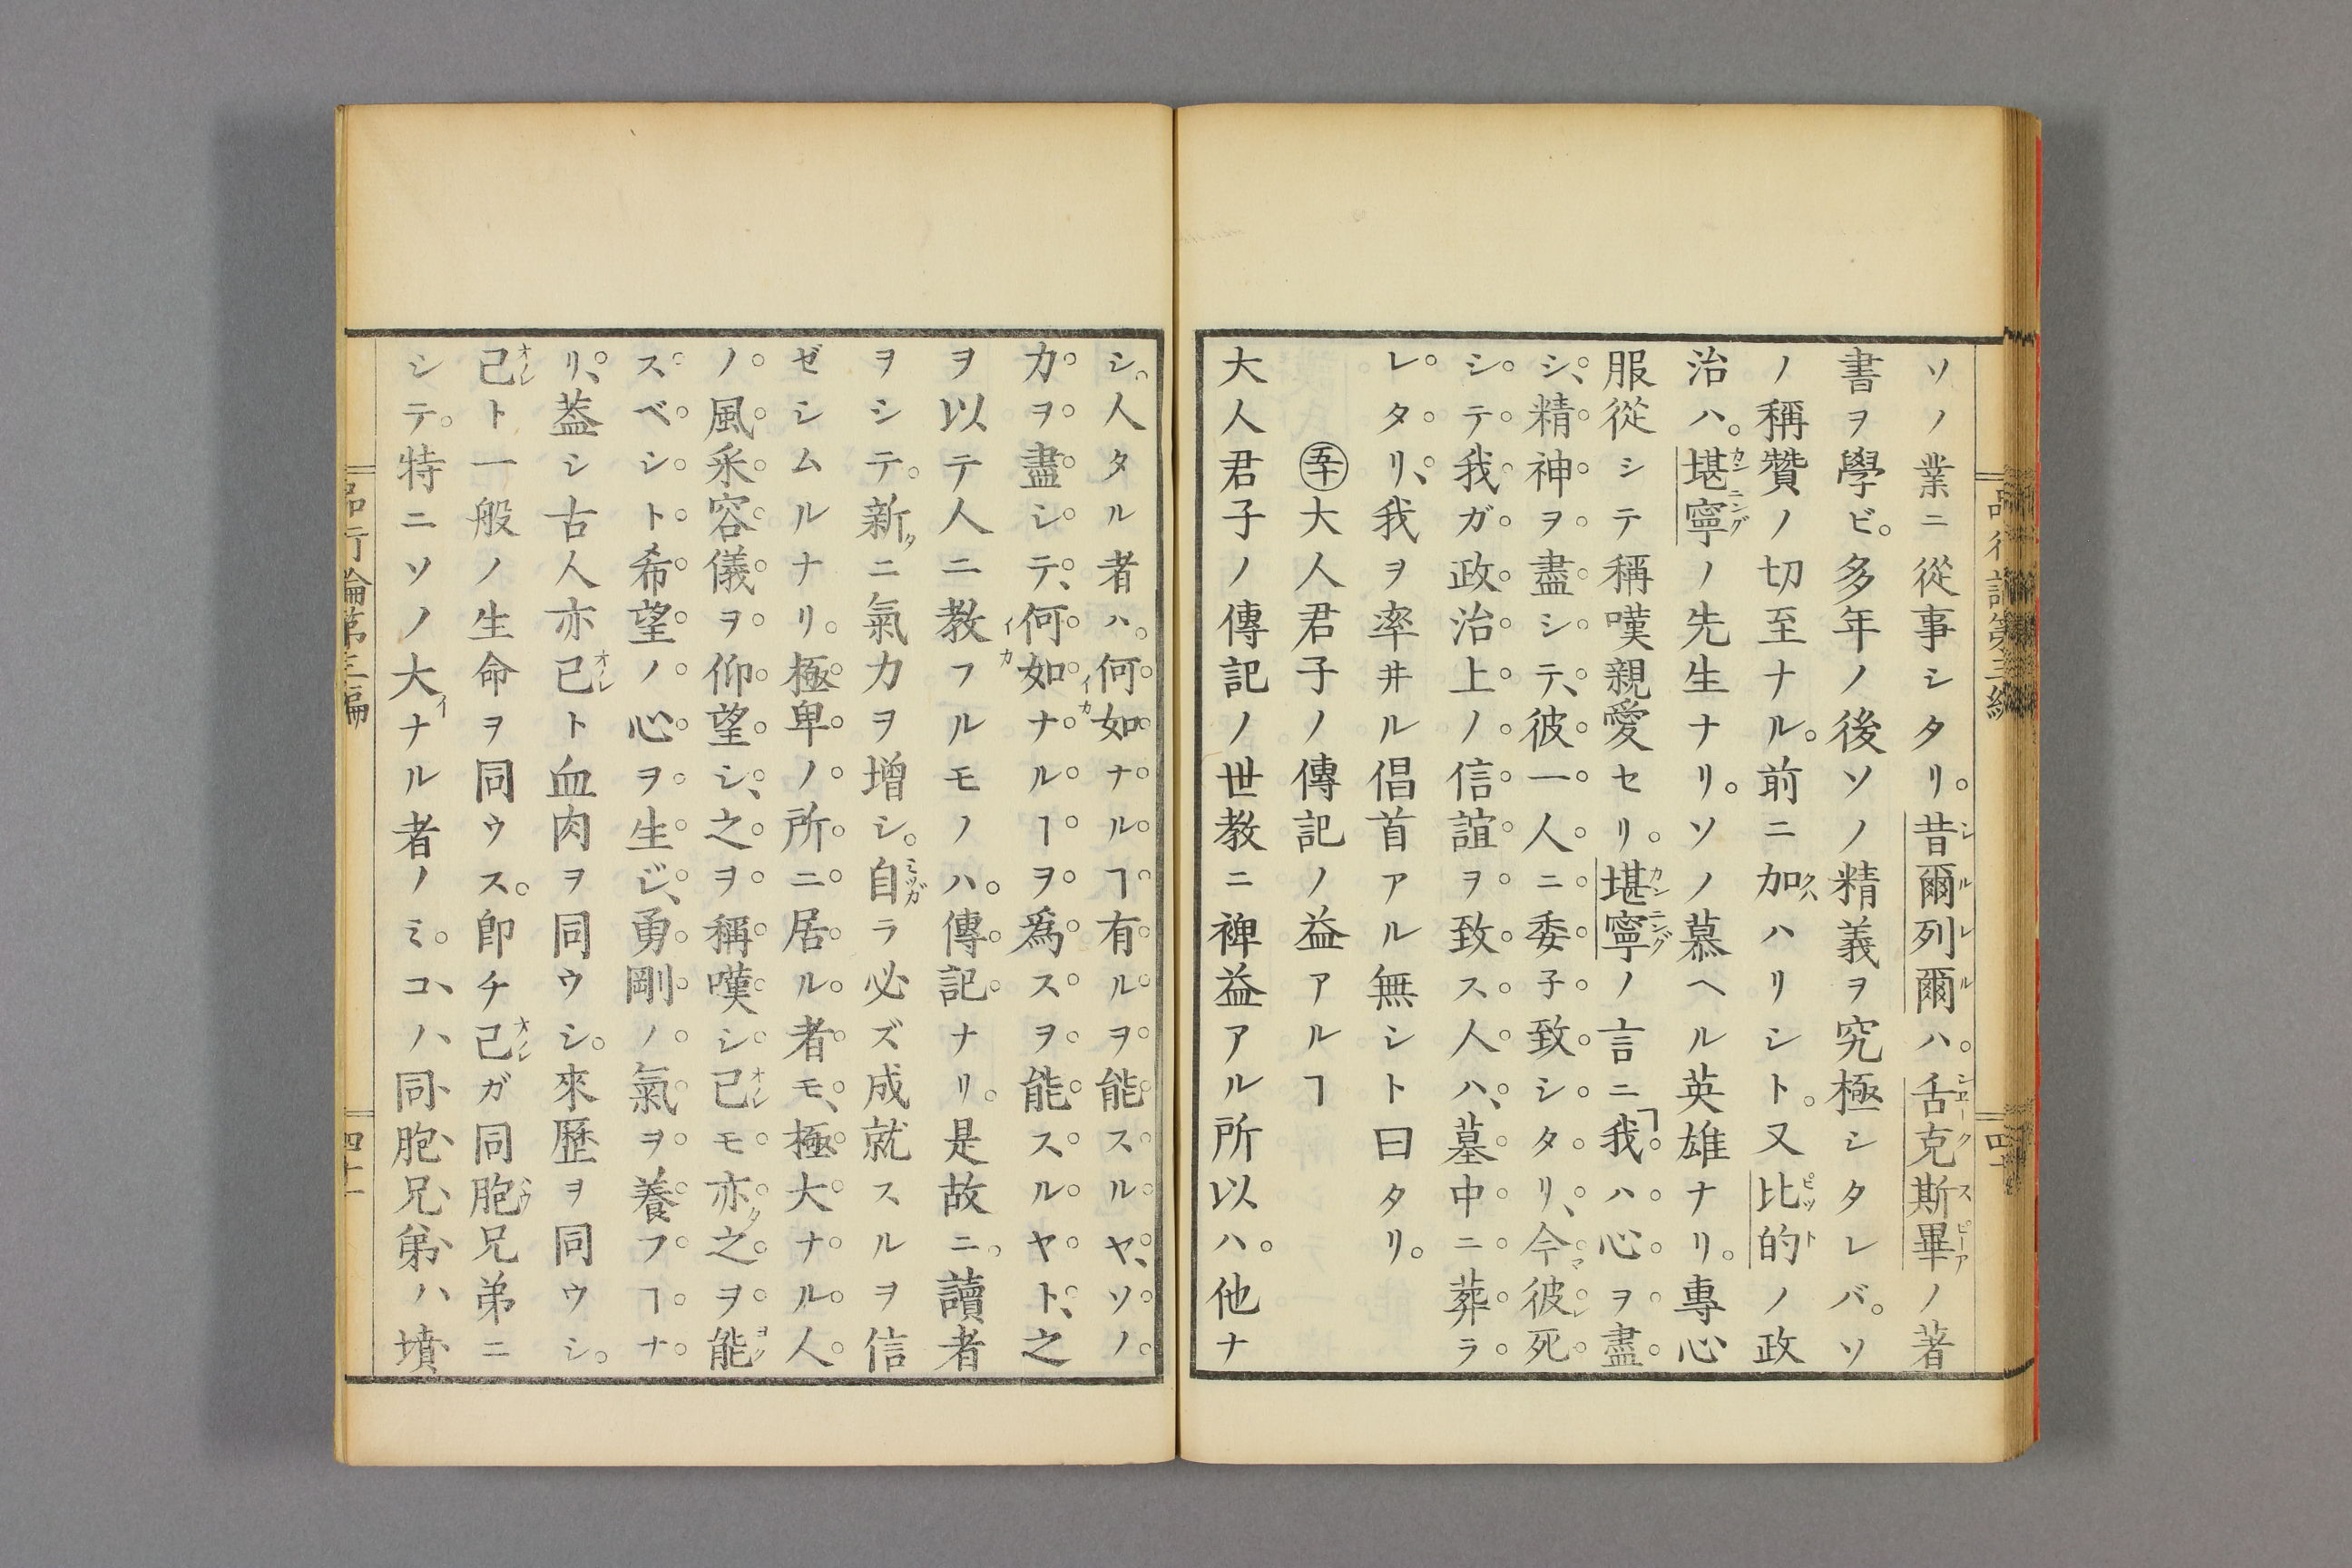 ソノ業ニ從事シタリ。昔爾列爾ハ。舌克斯畢ノ著
書ヲ學ビ。多年ノ後ソノ精義ヲ究極シタレバ。ソ
ノ稱贊ノ切至ナル。前ニ加ハリシト。又比的ノ政
治ハ。堪寧ノ先生ナリ。ソノ慕ヘル英雄ナリ。專心
服從シテ稱嘆親愛セリ。堪寧ノ言ニ「我ハ心ヲ盡
シ、精神ヲ盡シテ、彼一人ニ委子致シタリ、今彼死
シテ我ガ政治上ノ信誼ヲ致ス人ハ、墓中ニ葬ラ
レタリ、我ヲ率井ル倡首アル無シト曰タリ。
㊿大人君子ノ傳記ノ益アルヿ
大人君子ノ傳記ノ世教ニ裨益アル所以ハ。他ナ
シ、人タル者ハ。何如ナルヿ有ルヲ能スルヤ、ソノ
力ヲ盡シテ、何如ナルヿヲ爲スヲ能スルヤト、之
ヲ以テ人ニ教フルモノハ。傳記ナリ。是故ニ。讀者
ヲシテ。新ニ氣力ヲ增シ。自ラ必ズ成就スルヲ信
ゼシムルナリ。極卑ノ所ニ居ル者モ、極大ナル人
ノ風采容儀ヲ仰望シ、之ヲ稱嘆シ己モ亦之ヲ能
スベシト希望ノ心ヲ生ジ、勇剛ノ氣ヲ養フヿナ
リ、葢シ古人亦己ト血肉ヲ同ウシ。來歷ヲ同ウシ。
己ト一般ノ生命ヲ同ウス。卽チ己ガ同胞兄弟ニ
シテ。特ニソノ大ナル者ノミ。コノ同胞兄弟ハ墳
品行論第三編
四十一